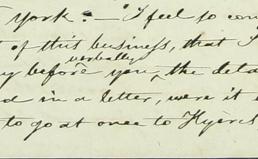 York: – I feel so con
of this business, that I
y before you, verbally the deta
d in a letter, were it
to go at once to Hyeres